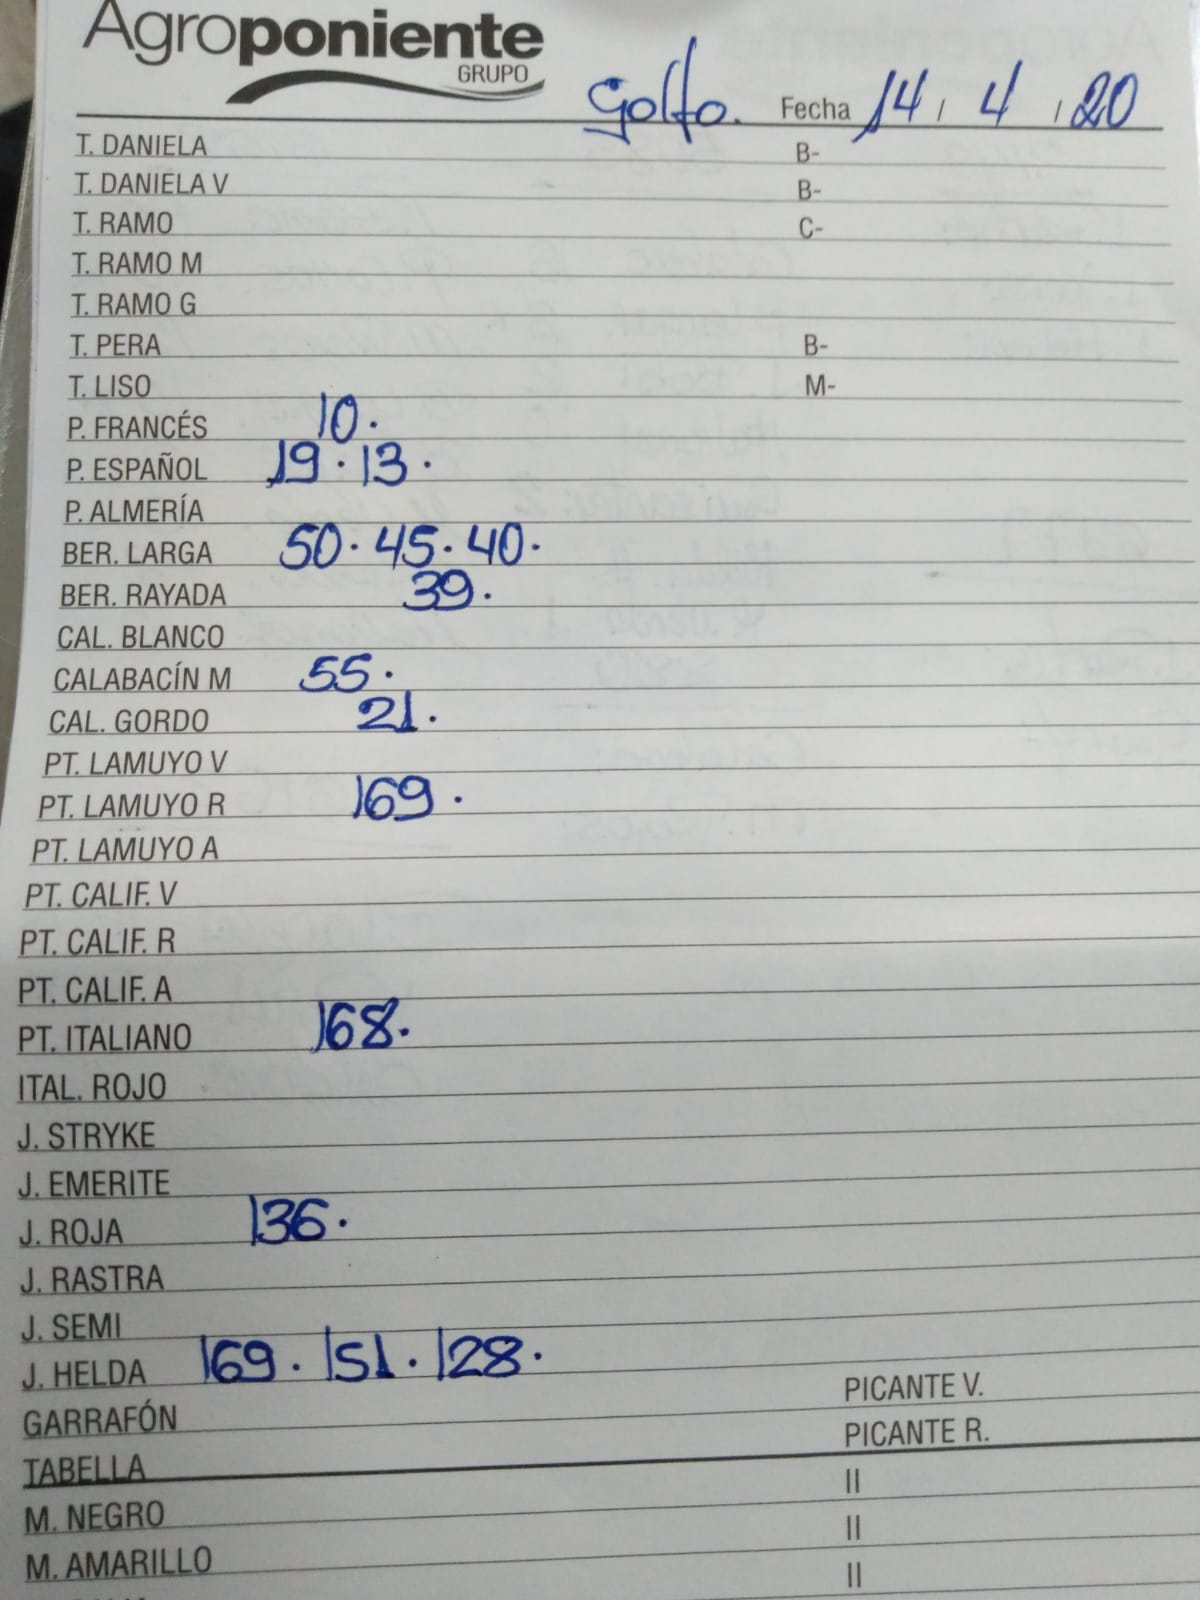 Agroponiente
GRUPO
Golfo. Fecha 14 / 4 / 20
T. DANIELA B-
T. DANIELA V B-
T. RAMO C-
T. RAMO M
T. RAMO G
T. PERA B-
T. LISO M-
P. FRANCÉS 10.
P. ESPAÑOL 19 · 13 ·
P. ALMERÍA
BER. LARGA 50 · 45 · 40 ·
BER. RAYADA 39 ·
CAL. BLANCO
CALABACÍN M 55 ·
CAL. GORDO 21 ·
PT. LAMUYO V
PT. LAMUYO R 169 ·
PT. LAMUYO A
PT. CALIF. V
PT. CALIF. R
PT. CALIF. A
PT. ITALIANO 168 ·
ITAL. ROJO
J. STRYKE
J. EMERITE
J. ROJA 136 ·
J. RASTRA
J. SEMI
J. HELDA 169 · 151 · 128 ·
GARRAFÓN PICANTE V.
TABELLA PICANTE R.
M. NEGRO II
M. AMARILLO II
II